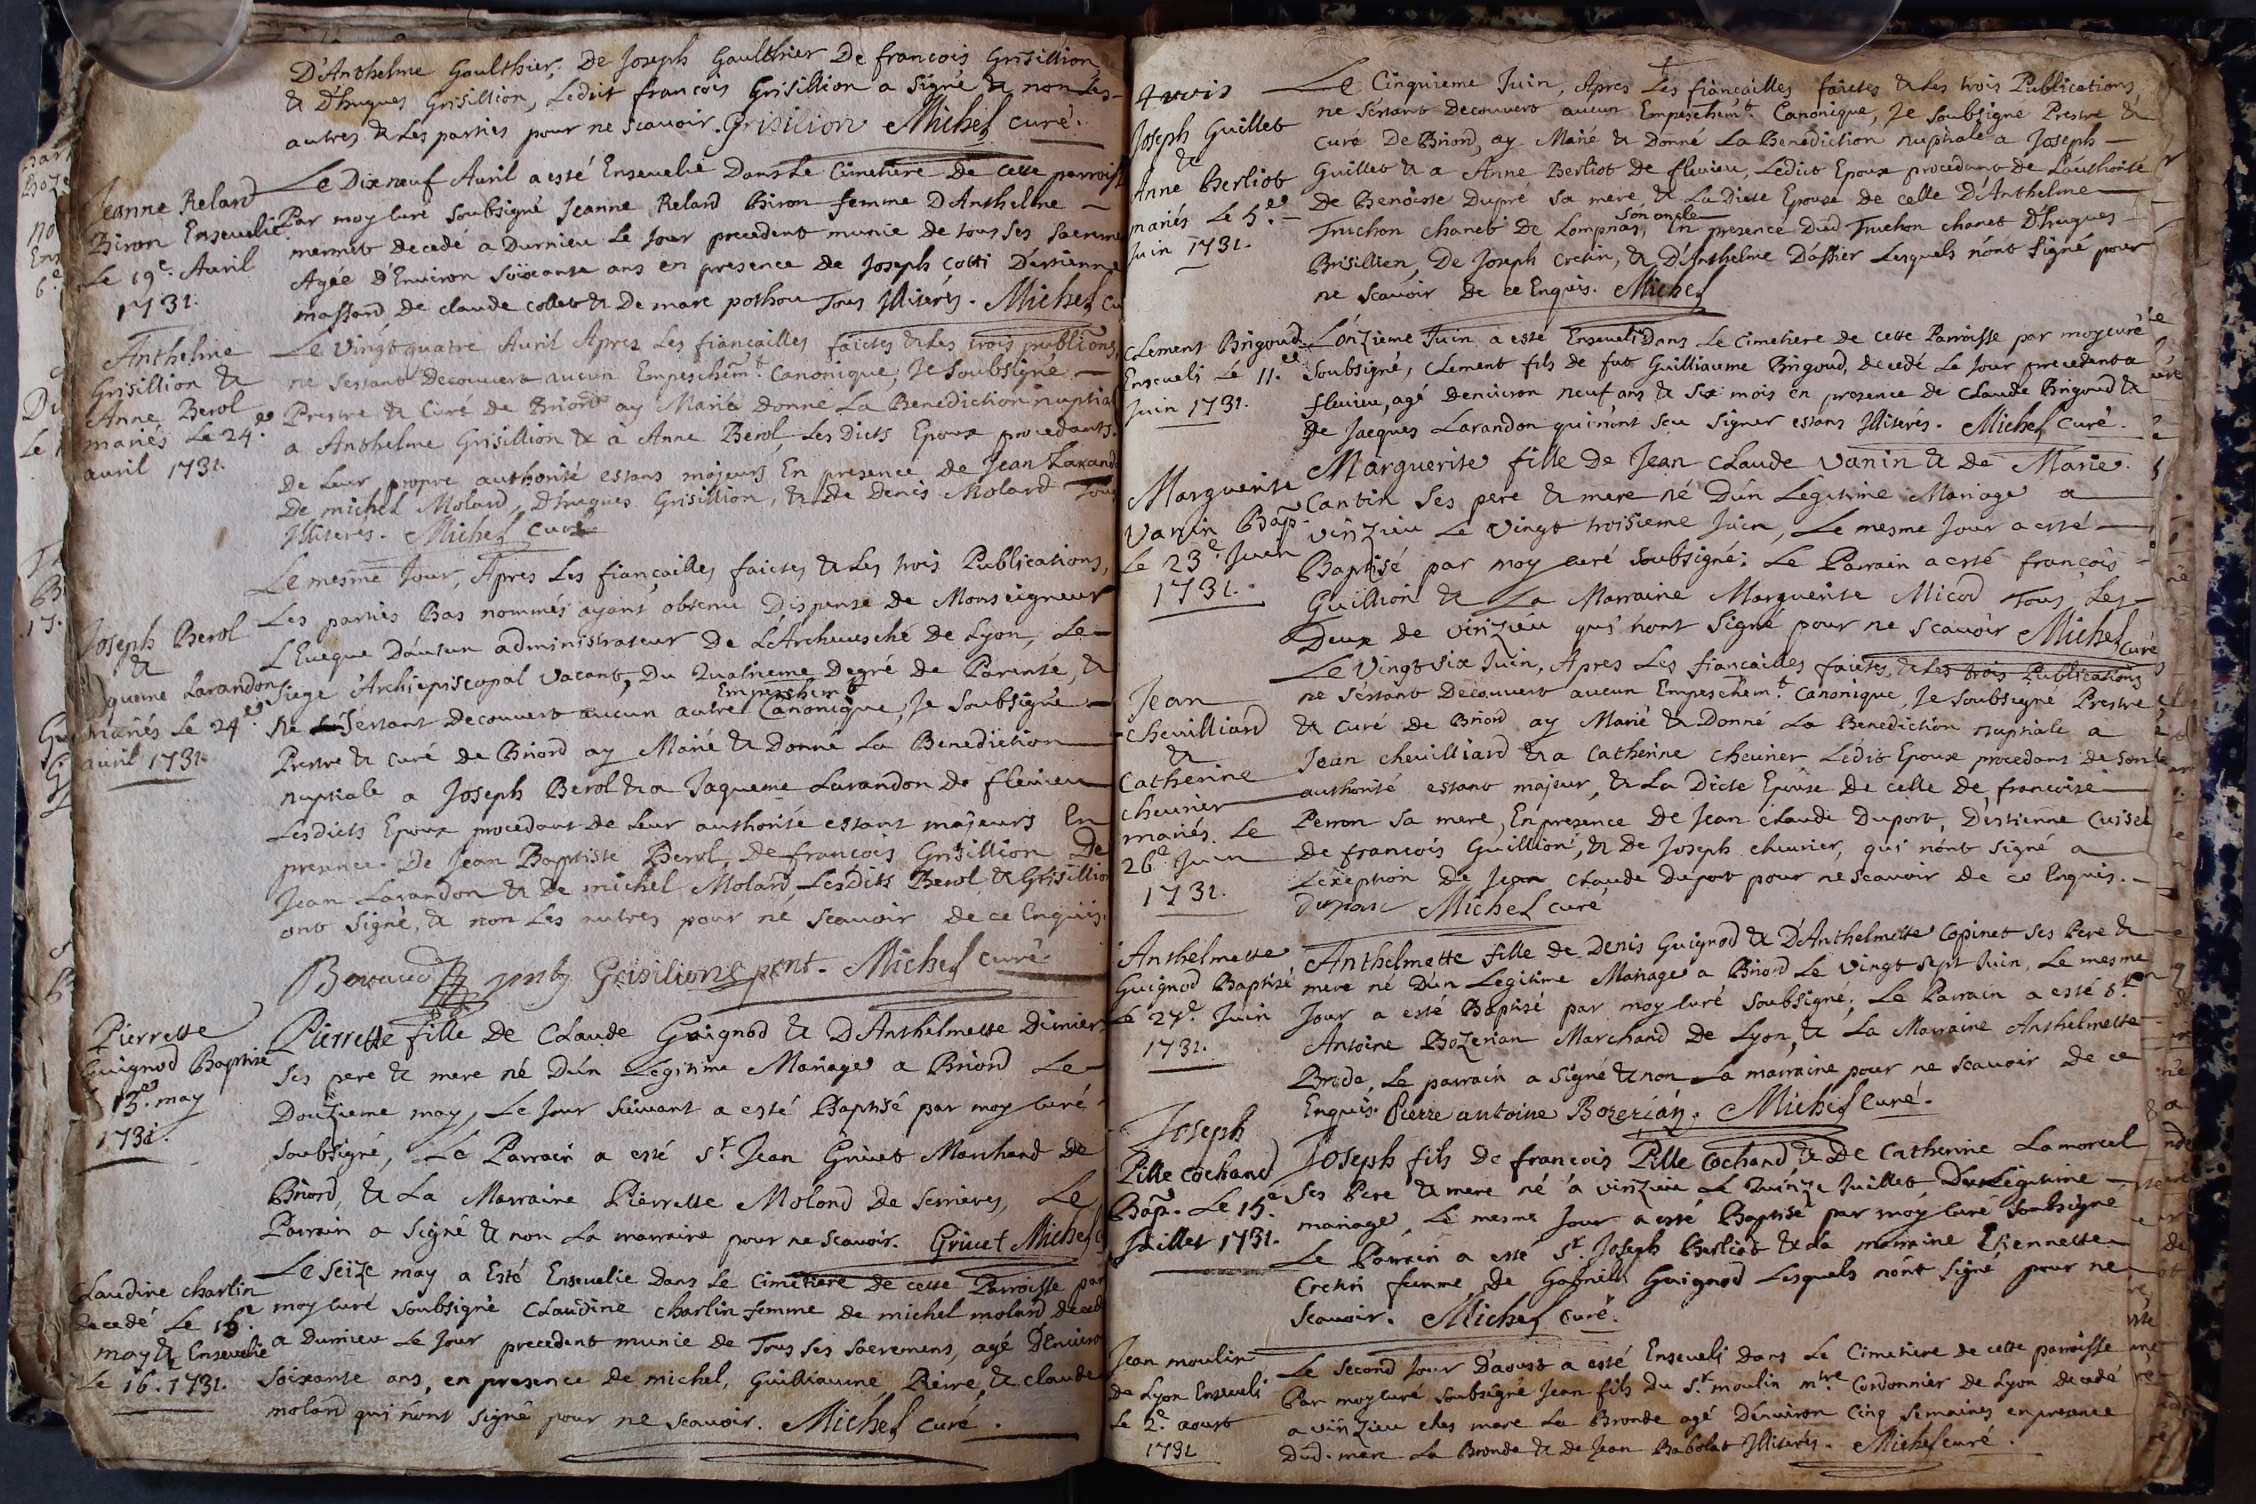 D'Anthelme Gaulthier, De Joseph Gaulthier De francois Grisillion
& D'hugues Grisillion, Ledict francois Grisillion a signé & non Les
autres & Les parties pour ne scauoir. Grisilion Michel curé.
Jeanne Relard
Biron Enseuelie
Le 19e. Auril
1731.
Le Dixneuf Auril a esté Enseuelie Dans Le Cimetiere De cette parroiss
Par moy curé soubsigné Jeanne Relard Biron femme D'Anthelme
mermet decedé a Durnieu Le Jour precedent munie de tous ses sacreme
Agée D'Enuiron soixante ans en presence de Joseph Cotti D'estienne
massard, De claude collet & De marc pothou Tous Illiterés. Michel cu
Anthelme
Grisillion &
Anne Berol
mariés Le 24e.
auril 1731.
Le Vingt quatre Auril Apres Les fiançailles faictes & Les trois publiõns,
ne sestant Decouuert aucun Empeschemt. Canonique, Je soubsigné
Prestre & Curé de Briord ay Marié donné La Benediction nuptial
a Anthelme Grisillion & a Anne Berol, Les Dicts Epoux procedants
De Leur propre authorité estans majeurs En presence de Jean Larand
De michel Molard, D'hugues Grisillion, & De Denis Molard Tous
Illiterés. Michel curé
Joseph Berol
&
Jqueme Larandon
mariés Le 24e.
auril 1731.
Le mesme Jour, Apres Les fiançailles faictes & Les trois Publications,
Les parties Bas nommés ayant obtenu Dispense de Monseigneur
L'Eueque D'autun administrateur de L'Archeuesché de Lyon, Le
Siege Archiepiscopal vacant, Du Quatrieme Degré de Parenté, &
Ne s'estant decouuert aucun autre Empeschemt Canonique, Je soubsigné
Prestre & curé de Briord ay Marié & Donné La Benediction
nuptiale a Joseph Berol & a Jaqueme Larandon de flevieu
Lesdicts Epoux procedant de Leur authorité estant majeurs En
presence. De Jean Baptiste Berol, De francois Grisillion De
Jean Larandon & De michel Molard, Lesdits Berol & Grisillion
ont signé, & non Les autres pour ne scauoir de ce Enquis.
Grisilion pent. Michel curé
Pierrette
Guignod Baptisé
13e. may
1731.
Pierrette fille De Claude Guignod & D'Anthelmette Dimier
Ses pere & mere né D'un Legitime Mariage a Briord Le
Douzieme may, Le Jour suiuant a esté Baptisé par moy curé
soubsigné, Le Parrain a esté Sr. Jean Griuet Marchand de
Briord, & La Marraine Pierrette Molond De Serrieres, Le
Parrain a signé & non La marraine pour ne scauoir. Griuet Michel c
Claudine charlin
decedé Le 15e
may & Enseuelie
Le 16. 1731.
Le seize may a Esté Enseuelie Dans Le Cimetiere de cette Parroisse par
moy curé soubsigné Claudine charlin femme de michel molard deced
a Durnieu Le Jour precedent munie de Tous ses sacremens, agé D'Enuiron
soixante ans, en presence de michel, Guilliaume Pierre, & claude
molard qui n'ont signé pour ne scauoir. Michel curé.
Joseph Guillet
&
Anne Berliot
mariés Le 5e.
Juin 1731.
Le Cinquieme Juin, Apres Les fiançailles faictes & Les trois Publications,
ne s'estant Decouuert aucun Empeschemt. Canonique, Je soubsigné Prestre &
Curé De Briord, ay Marié & Donné La Benediction nuptiale a Joseph
Guillet & a Anne Berliot de flevieu, Ledict Epoux procedant de L'authorité
De Benoiste Dupré sa mere, & La Dicte Epouse de celle D'Anthelme
Truchon chanet de Lompnas, son oncle En presence Dud Truchon chanet D'hugues
Brisillien, De Joseph Cretin, & D'Anthelme D'assier Lesquels n'ont signé pour
ne scauoir De ce Enquis. Michel
Clement Brigoud
Enseueli Le 11.e
Juin 1731.
L'onzieme Juin a esté Enseueli Dans Le Cimetiere de cette Parroisse par moy curé
soubsigné, Clement fils de fut Guilliaume Brigoud, decedé Le Jour precedent a
flevieu, agé denuiron neuf ans & six mois en presence de Claude Brigoud &
De Jacques Larandon qui n'ont sçu signer estans Illiterés. Michel curé.
Marguerite
Vanin Bap.
Le 23e. Juin
1731.
Marguerite fille de Jean Claude Vanin & de Marie
Cantin ses pere & mere né D'un Legitime Mariage a
virizieu Le Vingt troisieme Juin, Le mesme Jour a esté
Baptisé par moy curé soubsigné; Le Parrain a esté françois
Guillion & La Marraine Marguerite Micod Tous Les
Deux de virizieu qui n'ont signé pour ne scauoir Michel curé
Jean
Cheuilliard
&
Catherine
Cheurier
mariés Le
26e. Juin
1731.
Le Vingt six Juin, Apres Les fiançailles faictes, & Les trois Publications
ne s'estant Decouuert aucun Empeschemt. Canonique, Je soubsigné Prestre,
& Curé De Briord ay Marié & Donné La Benediction nuptiale a
Jean cheuilliard & a Catherine Cheurier Ledit Epoux procedant de son
authorité estant majeur, & La Dicte Epouse de celle de françoise
Perron sa mere, En presence De Jean Claude Duport, D'estienne Cuisel
De françois Guillion, & de Joseph cheurier, qui n'ont signé a
L'exeption De Jean Claude Duport pour ne scauoir de ce Enquis.
Duport Michel curé
Anthelmette
Guignod Baptisé
Le 27e. Juin
1731.
Anthelmette fille de Denis Guignod & D'Anthelmette Copinet ses Pere &
mere né D'un Legitime Mariage a Briord Le Vingt sept Juin, Le mesme
Jour a esté Baptisé par moy curé soubsigné; Le Parrain a esté Sr.
Antoine Bozerian Marchand De Lyon, & La Marraine Anthelmette
Brode, Le parrain a signé & non La marraine pour ne scauoir De ce
Enquis. Pierre antoine Bozerian. Michel curé.
Joseph
Pille cochand
Bap. Le 15e.
Juillet 1731.
Joseph fils De françois Pille Cochand, & De Catherine Lamorcel
Ses Pere & mere né a virizieu Le Quinze Juillet D'un Legitime
mariage, Le mesme Jour a esté Baptisé par moy curé soubsigné
Le Parrain a esté Sr. Joseph Berliot & La marraine Etiennette
Cretin femme de Gabriel Guignod Lesquels n'ont signé pour ne
scauoir. Michel curé.
Jean moulin
de Lyon Enseueli
Le 2e. aoust
1731
Le second Jour D'aoust a esté Enseueli dans Le Cimetiere de cette paroisse
Par moy curé soubsigné Jean fils Du Sr. moulin mtre Cordonnier de Lyon decedé
a virizieu ches marc La Bronde agé D'enuiron Cinq semaines en presence
Dud. marc La Bronde & de Jean Babolat Illiterés. Michel curé.